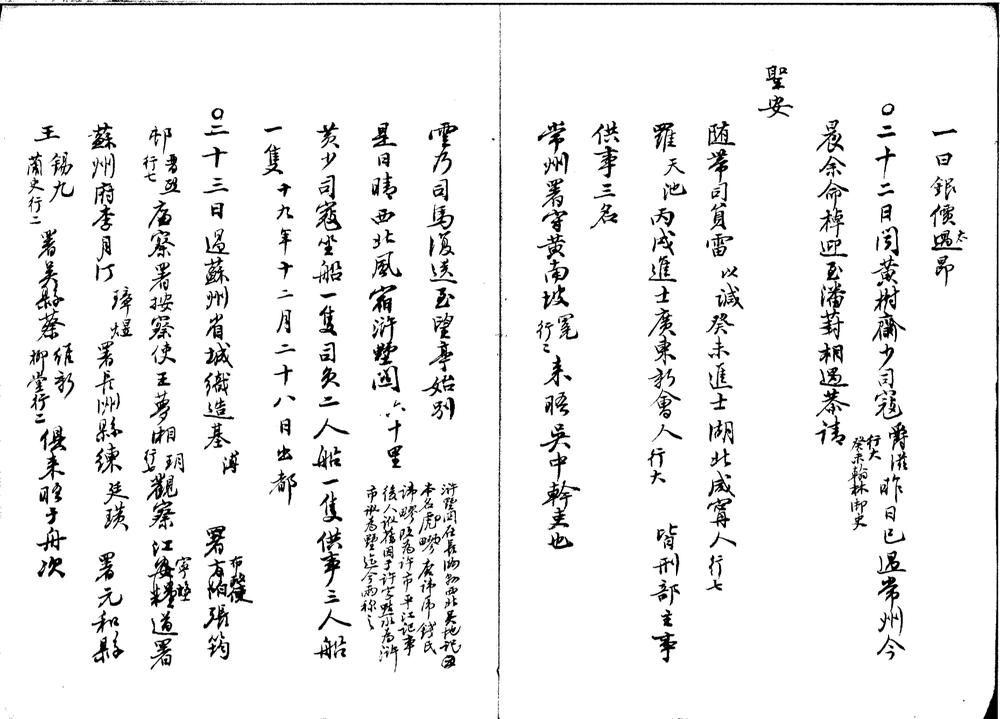 一曰銀價太昂
○二十二日聞黃樹齋少司寇爵滋行大癸未翰林御史昨日已過常州今
晨余命棹迎至潘葑相遇恭請
聖安
隨帶司員雷以諴癸未進士湖北咸寧人行七
羅天池丙戌進士廣東新會人行大 皆刑部主事
供事三名
常州署守黃南坡冕行二來晤吳中幹吏也
雲乃司馬復送至望亭始別
是日晴西北風宿滸墅關六十里滸墅關在長洲縣西北吳地記
本名虎疁唐諱虎錢氏
諱疁改為許市平江記事
後人訛舊因于許字點水為滸
市訛為墅迄今兩稱之
黃少司寇坐船一隻司員二人船一隻供事三人船
一隻十九年十二月二十八日出都
○二十三日過蘇州省城織造基溥 署布政使張筠
邨行七廉察署按察使王夢湘玥行觀察江安糧道署
蘇州府李月汀璋煜署長洲縣練廷璜 署元和縣
王錫九蘭史行二署吳縣蔡維新柳堂行二俱來晤于舟次